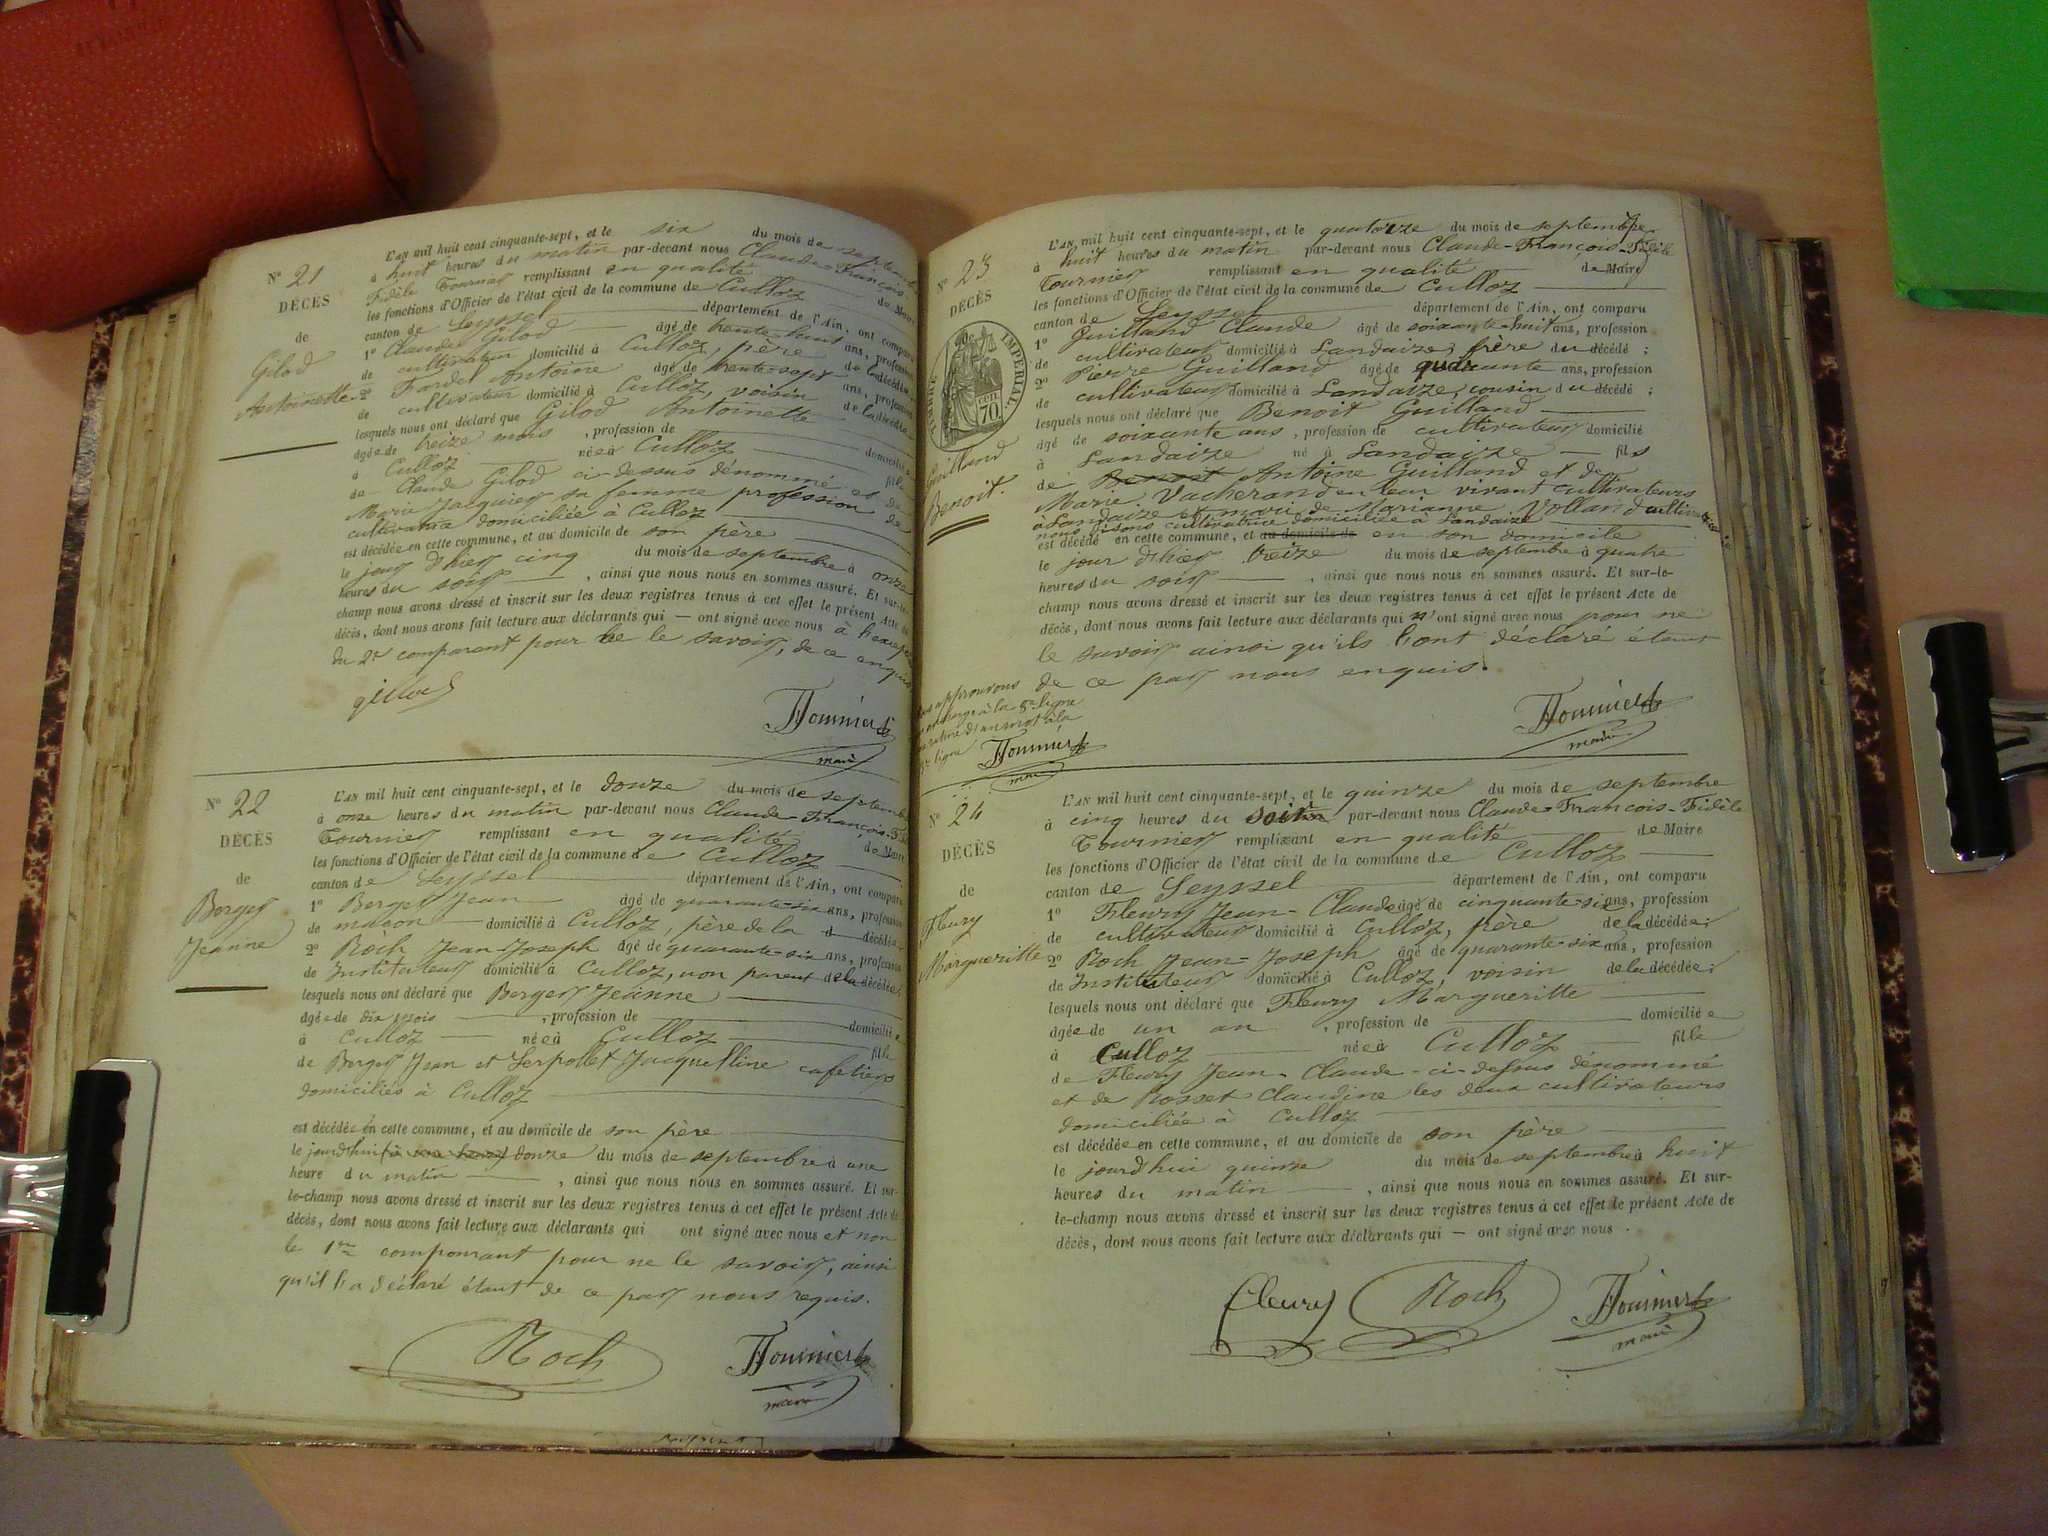 N° 21
DÉCÈS
de
Gilod
Antoinette
L'AN mil huit cent cinquante-sept, et le six du mois de septembre
à huit heures du matin par-devant nous Claude-François-
Fidèle Tournier remplissant en qualité de Maire
les fonctions d'Officier de l'état civil de la commune de Culloz
canton de Seyssel département de l'Ain, ont comparu
1° Claude Gilod âgé de trente-huit ans, profession
de cultivateur domicilié à Culloz, père de la décédée
2° Fordel Antoine âgé de trente-sept ans, profession
de cultivateur domicilié à Culloz, voisin de la décédée
lesquels nous ont déclaré que Gilod Antoinette
âgée de treize mois , profession de domicilié
à Culloz née à Culloz fille
de Claude Gilod ci-dessus dénommé et de
Marie Jacquier sa femme profession de
cultivatrice domiciliée à Culloz
est décédée en cette commune, et au domicile de son père
le jour d'hier cinq du mois de septembre à onze
heures du soir , ainsi que nous nous en sommes assuré. Et sur-le-
champ nous avons dressé et inscrit sur les deux registres tenus à cet effet le présent Acte de
décès, dont nous avons fait lecture aux déclarants qui — ont signé avec nous à l'except
du 2e comparant pour ne le savoir, de ce enquis
gillod
Tournier
maire
N° 22
DÉCÈS
de
Berger
Jeanne
L'AN mil huit cent cinquante-sept, et le douze du mois de septembre
à onze heures du matin par-devant nous Claude-François-Fidèle
Tournier remplissant en qualité de Maire
les fonctions d'Officier de l'état civil de la commune de Culloz
canton de Seyssel département de l'Ain, ont comparu
1° Berger Jean âgé de quarante-six ans, profession
de maçon domicilié à Culloz, père de la décédée
2° Roch Jean-Joseph âgé de quarante-six ans, profession
de Instituteur domicilié à Culloz, non parent de la décédée;
lesquels nous ont déclaré que Berger Jeanne
âgée de dix mois , profession de domicilié e
à Culloz née à Culloz fille
de Berger Jean et Serpollet Jacqueline cafetiers
domiciliés à Culloz
est décédée en cette commune, et au domicile de son père
le jourd'hui (à une heure) douze du mois de septembre à une
heure du matin , ainsi que nous nous en sommes assuré. Et sur-
le-champ nous avons dressé et inscrit sur les deux registres tenus à cet effet le présent Acte de
décès, dont nous avons fait lecture aux déclarants qui ont signé avec nous et non
le 1er comparant pour ne le savoir, ainsi
qu'il l'a déclaré étant de ce par nous requis.
Roch
Tournier
maire
N° 23
DÉCÈS
TIMBRE IMPERIAL
70
Guilland
Benoit.
L'AN mil huit cent cinquante-sept, et le quatorze du mois de septembre
à huit heures du matin par-devant nous Claude-François-Fidèle
Tournier remplissant en qualité de Maire
les fonctions d'Officier de l'état civil de la commune de Culloz
canton de Seyssel département de l'Ain, ont comparu
1° Guilland Claude âgé de soixante-huit ans, profession
de cultivateur domicilié à Landaize, frère du décédé ;
2° Pierre Guilland âgé de quarante ans, profession
de cultivateur domicilié à Landaize, cousin du décédé ;
lesquels nous ont déclaré que Benoit Guilland
âgé de soixante ans , profession de cultivateur domicilié
à Landaize né à Landaize fils
de Benoit Antoine Guilland et de
Marie Vacherand en leur vivant cultivateurs
à Landaize et mari de Marianne Volland cultivatrice
nous disons cultivatrice domiciliée à Landaize
est décédé en cette commune, et au domicile de en son domicile
le jour d'hier treize du mois de septembre à quatre
heures du soir , ainsi que nous nous en sommes assuré. Et sur-le-
champ nous avons dressé et inscrit sur les deux registres tenus à cet effet le présent Acte de
décès, dont nous avons fait lecture aux déclarants qui n'ont signé avec nous pour ne
le savoir ainsi qu'ils l'ont déclaré étant
de ce par nous enquis.
approuvons
à la 8e ligne
d'un mot à la
ligne
Tournier
maire
Tournier
maire
N° 24
DÉCÈS
de
Fleury
Margueritte
L'AN mil huit cent cinquante-sept, et le quinze du mois de septembre
à cinq heures du soir par-devant nous Claude-François-Fidèle
Tournier remplissant en qualité de Maire
les fonctions d'Officier de l'état civil de la commune de Culloz
canton de Seyssel département de l'Ain, ont comparu
1° Fleury Jean-Claude âgé de cinquante-six ans, profession
de cultivateur domicilié à Culloz, père de la décédée;
2° Roch Jean-Joseph âgé de quarante-six ans, profession
de Instituteur domicilié à Culloz, voisin de la décédée;
lesquels nous ont déclaré que Fleury Margueritte
âgée de un an , profession de domicilié e
à Culloz née à Culloz fille
de Fleury Jean-Claude-ci-dessus dénommé
et de Rosset Claudine les deux cultivateurs
domiciliée à Culloz
est décédée en cette commune, et au domicile de son père
le jourd'hui quinze du mois de septembre à huit
heures du matin , ainsi que nous nous en sommes assuré. Et sur-
le-champ nous avons dressé et inscrit sur les deux registres tenus à cet effet le présent Acte de
décès, dont nous avons fait lecture aux déclarants qui — ont signé avec nous .
Fleury
Roch
Tournier
maire